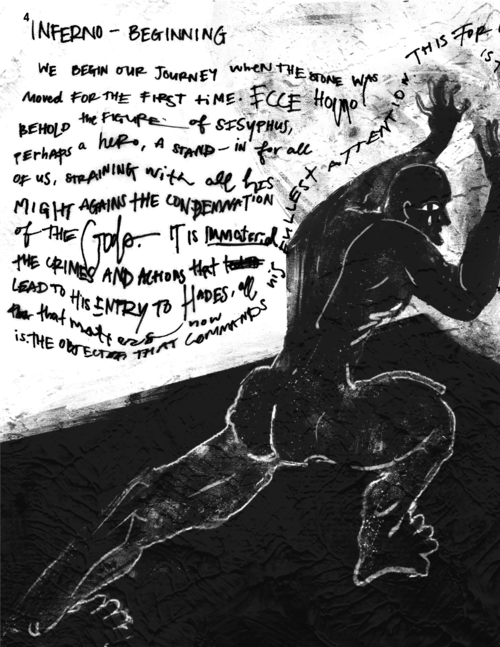 4
INFERNO - BEGINNING
WE BEGIN OUR JOURNEY when THE STONE WAS
moved FOR THE FIRST TIME. ECCE Homo!
BEHOLD the FIGURE of SISYPHUS,
perhaps a hero, A STAND-in for all
OF US, STRAINING with all his
MIGHT AGAINS THE CONDEMNATION
of THE Gods. IT IS Immaterial
THE CRIMES AND ACTIONS that
LEAD TO HIS ENTRY TO HADES, all
that matters now
is THE OBJECT THAT COMMANDS
HIS FULLEST ATTENTION. THIS FOR
IS